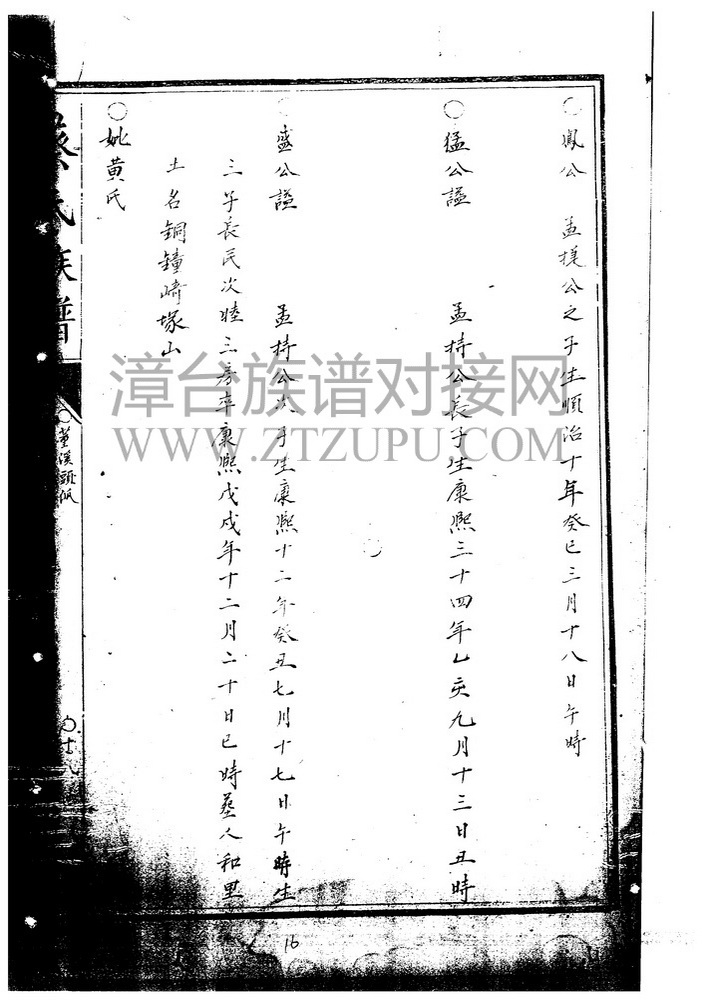 ○鳳公 孟㨗公之子生順治十年癸巳三月十八日午時
○猛公謚 孟持公長子生康熙三十四年乙亥九月十三日丑時
○盛公謚 孟持公次子生康熙十二年癸丑七月十七日午時生
三子長民次睦三房卒康熙戊戌年十二月二十日巳時葬人和里
土名銅鐘崎塚山
○妣黃氏
蔡氏族譜
頭
漳台族谱对接网
WWW.ZTZUPU.COM
16